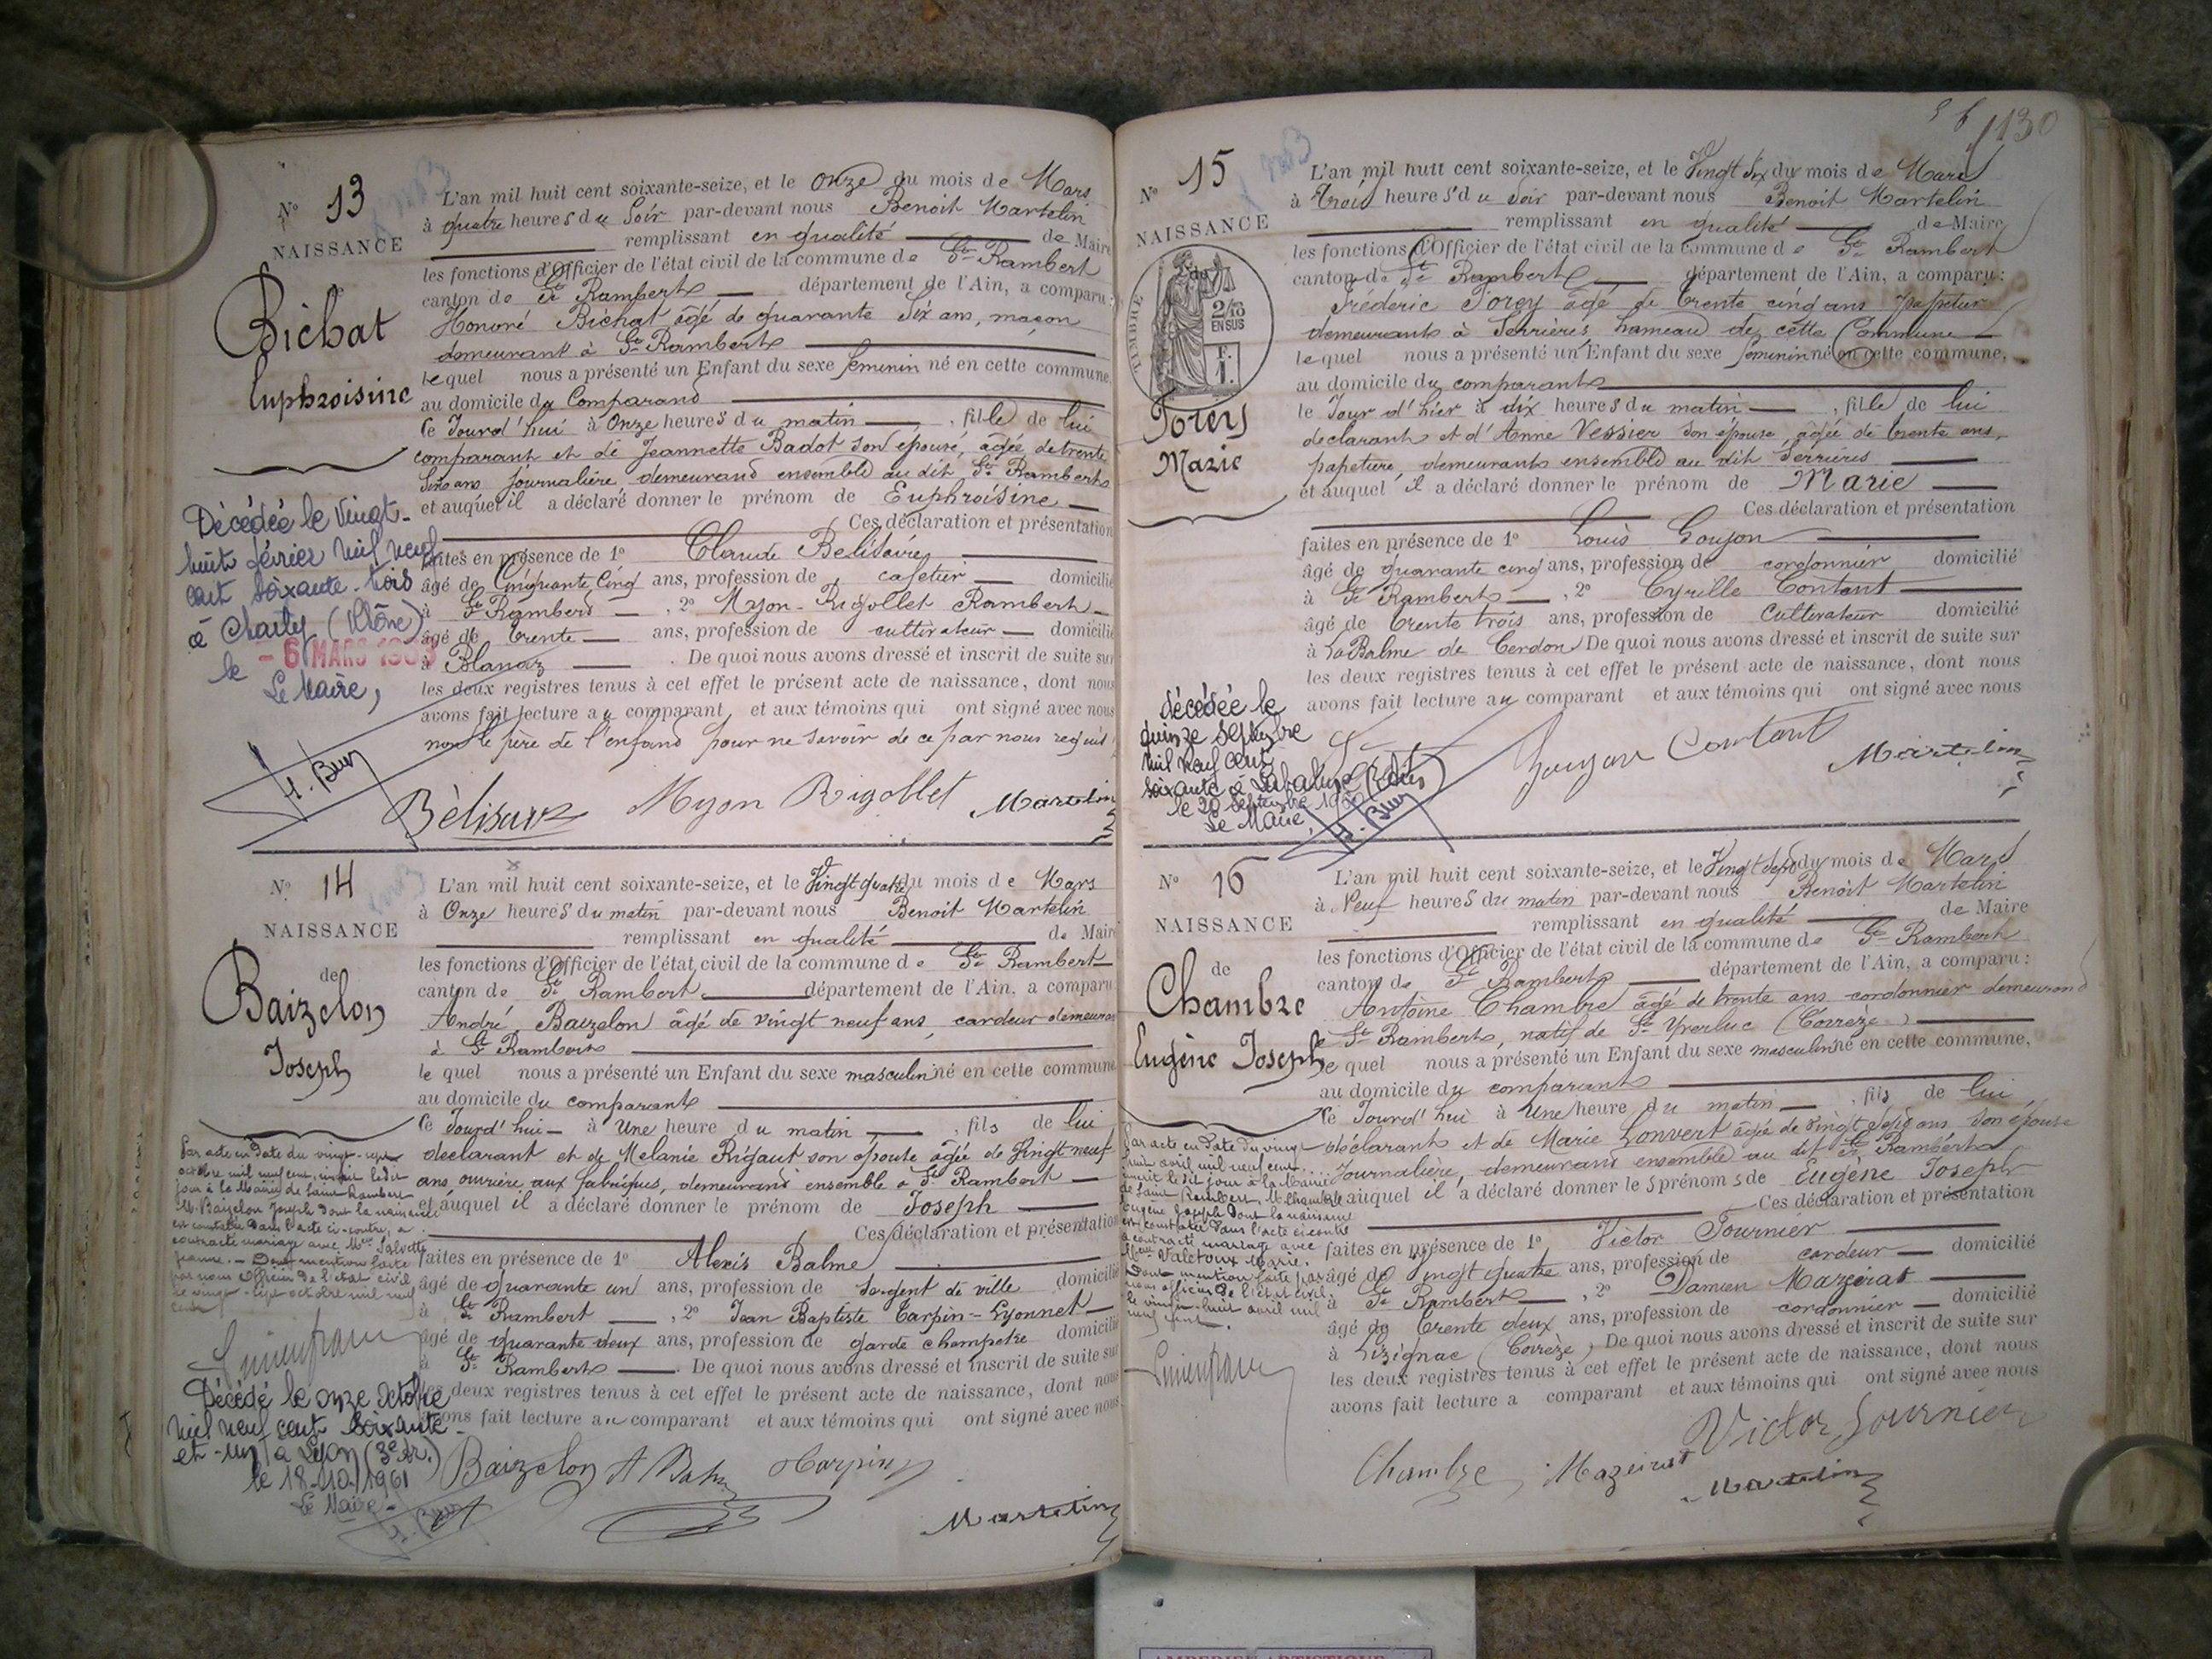 N° 13
NAISSANCE
de
Bichat
Euphroisine
L'an mil huit cent soixante-seize, et le onze du mois de Mars
à quatre heures du Soir par-devant nous Benoit Martelin
remplissant en qualité de Maire
les fonctions d'Officier de l'état civil de la commune de St Rambert
canton de St Rambert département de l'Ain, a comparu :
Honoré Bichat âgé de quarante Six ans, maçon
demeurant à St Rambert
lequel nous a présenté un Enfant du sexe feminin né en cette commune,
au domicile du Comparant
Ce Jourd'hui à Onze heures du matin , fille de lui
comparant et de Jeannette Badot son épouse, âgée de trente
ans journalière, demeurant ensemble au dit St Rambert
et auquel il a déclaré donner le prénom de Euphroisine
Ces déclaration et présentation
faites en présence de 1° Claude Belisaire
âgé de Cinquante Cinq ans, profession de cafetier domicilié
à St Rambert , 2° Myon-Rigollet Rambert
âgé de trente ans, profession de cultivateur domicilié
à Blanaz . De quoi nous avons dressé et inscrit de suite sur
les deux registres tenus à cet effet le présent acte de naissance, dont nous
avons fait lecture au comparant et aux témoins qui ont signé avec nous
non le père de l'enfant pour ne savoir de ce par nous requis
Décédée le vingt-
huit février mil neuf
cent soixante-trois
à Charly (Rhône)
le - 6 MARS 1963
Le Maire,
Bélisaire Myon Rigollet Martelin
N° 14
NAISSANCE
de
Baizelon
Joseph
L'an mil huit cent soixante-seize, et le Vingt quatre du mois de Mars
à Onze heures du matin par-devant nous Benoit Martelin
remplissant en qualité de Maire
les fonctions d'Officier de l'état civil de la commune de St Rambert
canton de St Rambert département de l'Ain, a comparu
André Baizelon âgé de vingt neuf ans, cardeur demeurant
à St Rambert
lequel nous a présenté un Enfant du sexe masculin né en cette commune
au domicile du comparant
Ce Jourd'hui à Une heure du matin , fils de lui
declarant et de Melanie Rigaut son épouse âgée de Vingt neuf
ans ouvrière aux fabriques, demeurant ensemble à St Rambert
et auquel il a déclaré donner le prénom de Joseph
Ces déclaration et présentation
faites en présence de 1° Alexis Balme
âgé de quarante un ans, profession de Sergent de ville domicilié
à St Rambert , 2° Jean Baptiste Carpin-Lyonnet
âgé de quarante deux ans, profession de garde champetre domicilié
à St Rambert . De quoi nous avons dressé et inscrit de suite sur
les deux registres tenus à cet effet le présent acte de naissance, dont nous
avons fait lecture au comparant et aux témoins qui ont signé avec nous
Par acte en date du vingt-sept
octobre mil neuf cent, inscrit ledit
jour à la Mairie de Saint Rambert
M. Baizelon Joseph dont la naissance
est constatée dans l'acte ci-contre, a
contracté mariage avec Melle Salvetti
Jeanne. - Dont mention faite
par nous Officier de l'état civil
le vingt-sept octobre mil neuf
cent
Décédé le onze octobre
mil neuf cent soixante-
et-un à Lyon (3e Ar.)
le 18-10-1961
Le Maire
Baizelon A Balme Carpin
Martelin
130
N° 15
NAISSANCE
de
TIMBRE
2/10
EN SUS
Forey
Marie
L'an mil huit cent soixante-seize, et le Vingt Six du mois de Mars
à trois heures du Soir par-devant nous Benoit Martelin
remplissant en qualité de Maire
les fonctions d'Officier de l'état civil de la commune de St Rambert
canton de St Rambert département de l'Ain, a comparu :
Fréderic Forey âgé de trente cinq ans papetier
demeurant à Serrieres, hameau de cette Commune
lequel nous a présenté un Enfant du sexe féminin né en cette commune,
au domicile du comparant
le Jour d'hier à dix heures du matin , fille de lui
declarant et d'Anne Vessier son épouse, âgée de trente ans,
papetiere, demeurant ensemble au dit Serrieres
et auquel il a déclaré donner le prénom de Marie
Ces déclaration et présentation
faites en présence de 1° Louis Goujon
âgé de quarante cinq ans, profession de cordonnier domicilié
à St Rambert , 2° Cyrille Contant
âgé de trente trois ans, profession de Cultivateur domicilié
à La Balme de Cerdon De quoi nous avons dressé et inscrit de suite sur
les deux registres tenus à cet effet le présent acte de naissance, dont nous
avons fait lecture au comparant et aux témoins qui ont signé avec nous
décédée le
quinze septembre
mil neuf cent
soixante à
le 20 Septembre 1960
Le Maire,
Goujon Contant Martelin
N° 16
NAISSANCE
de
Chambre
Eugène Joseph
L'an mil huit cent soixante-seize, et le Vingt Sept du mois de Mars
à Neuf heures du matin par-devant nous Benoit Martelin
remplissant en qualité de Maire
les fonctions d'Officier de l'état civil de la commune de St Rambert
canton de St Rambert département de l'Ain, a comparu :
Antoine Chambre âgé de trente ans cordonnier demeurant
à St Rambert, natif de St (Corrèze)
lequel nous a présenté un Enfant du sexe masculin né en cette commune,
au domicile du comparant
Ce Jourd'hui à Une heure du matin , fils de lui
déclarant et de Marie Convert âgée de Vingt Sept ans son épouse
Journalière, demeurant ensemble au dit St Rambert
et auquel il a déclaré donner les prénoms de Eugène Joseph
Ces déclaration et présentation
faites en présence de 1° Victor Fournier
âgé de Vingt quatre ans, profession de cardeur domicilié
à St Rambert , 2° Damien Mazeirat
âgé de trente deux ans, profession de cordonnier domicilié
à (Corrèze) De quoi nous avons dressé et inscrit de suite sur
les deux registres tenus à cet effet le présent acte de naissance, dont nous
avons fait lecture a comparant et aux témoins qui ont signé avec nous
Par acte en date du vingt
huit avril mil neuf cent
inscrit le dit jour à la Mairie
de Saint Rambert, M. Chambre
Eugène Joseph dont la naissance
est constatée dans l'acte ci contre
a contracté mariage avec
Marie.
Dont mention faite par
nous officier de l'état civil
le vingt-huit avril mil
neuf cent.
Victor Fournier
Chambre Mazeirat
Martelin